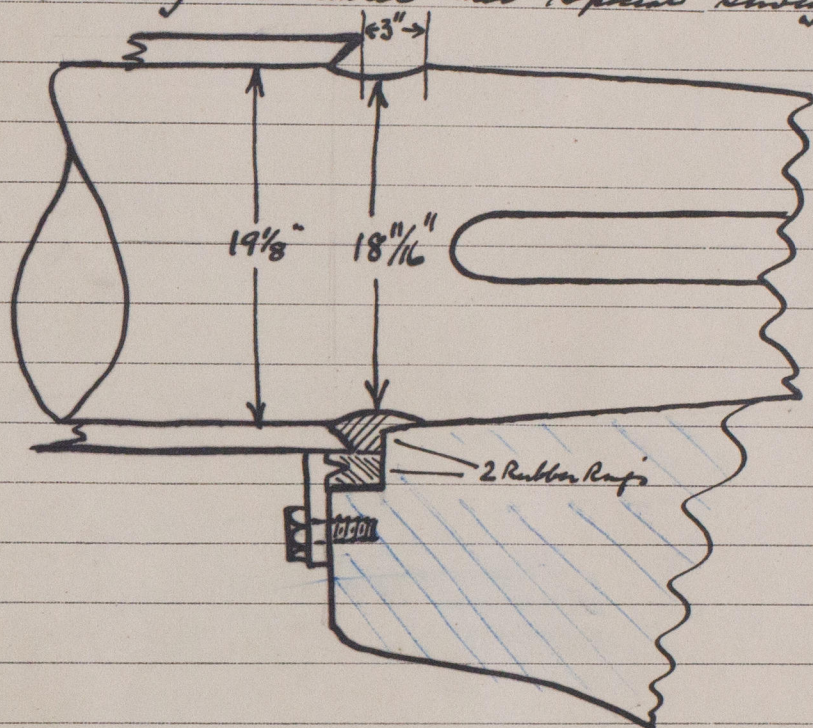 3"
19⅛"
18 11/16"
2 Rubber Rings